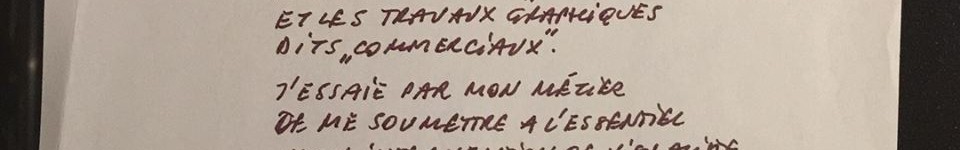 ET LES TRAVAUX GRAPHIQUES
DITS „COMMERCIAUX".
J'ESSAIE PAR MON MÉTIER
DE ME SOUMETTRE A L'ESSENTIEL